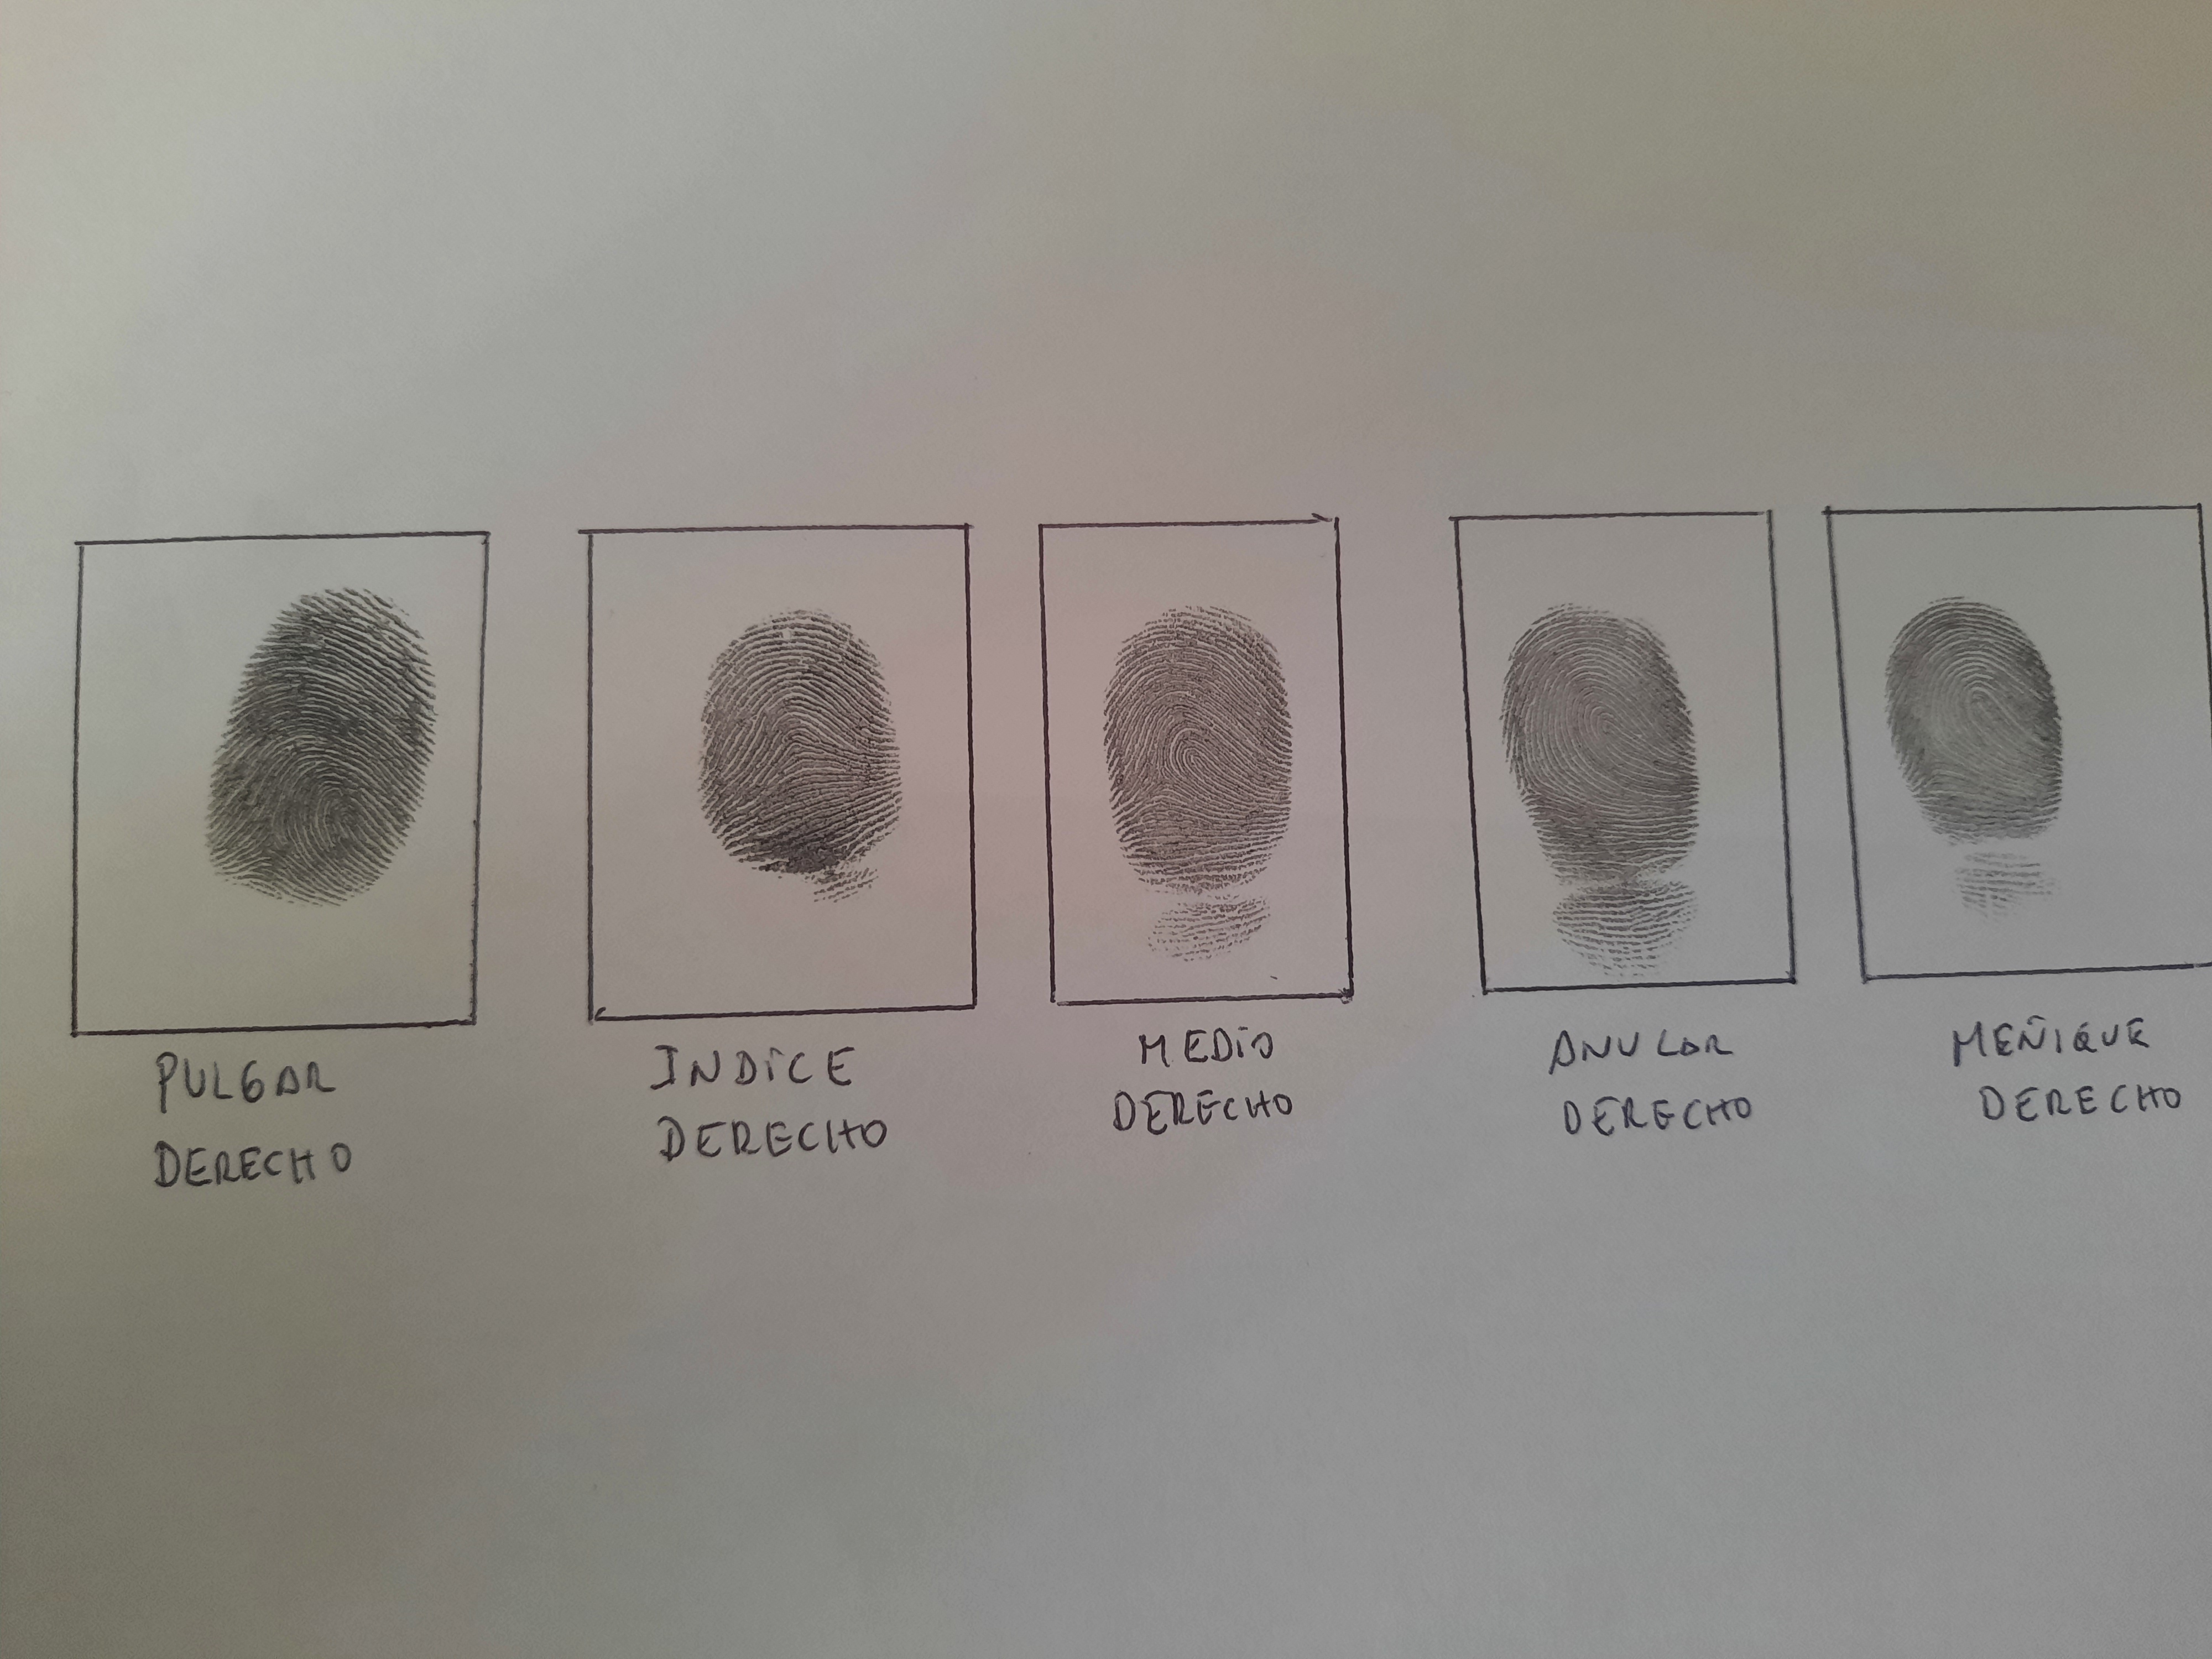 PULGAR
DERECHO
INDICE
DERECHO
MEDIO
DERECHO
ANULAR
DERECHO
MEÑIQUE
DERECHO